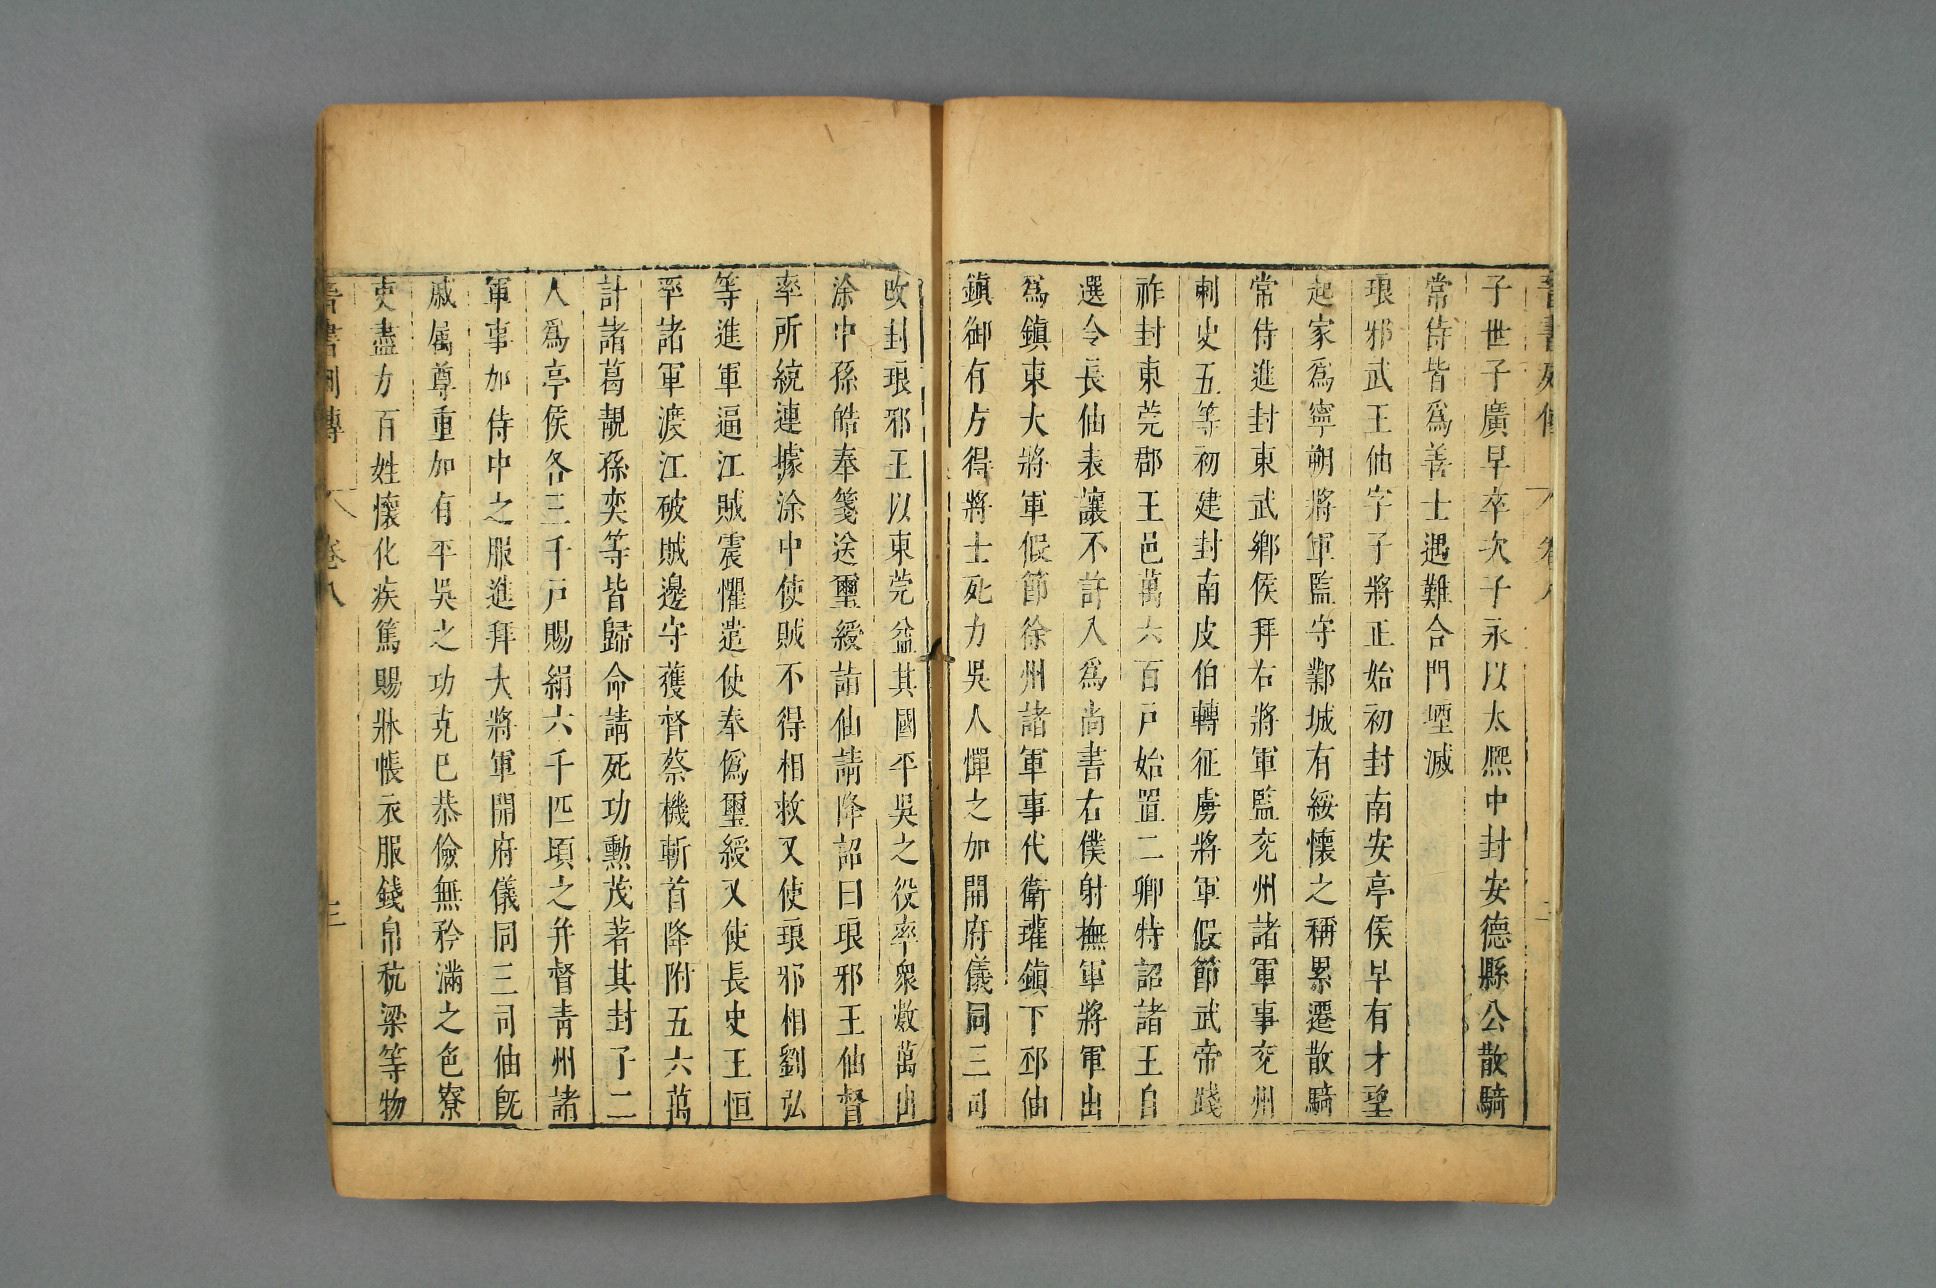 子世子廣早卒次子永以太熈中封安德縣公散騎
常侍皆爲善士遇難合門堙滅
琅邪武王伷字子將正始初封南安亭侯早有才望
起家爲寧朔將軍監守鄴城有綏懷之稱累遷散騎
常侍進封東武鄉侯拜右將軍監兖州諸軍事兖州
刺史五等初建封南皮伯轉征虜將軍假節武帝踐
祚封東莞郡王邑萬六百戸始置二卿特詔諸王自
選令長伷表讓不許入爲尚書右僕射撫軍將軍出
爲鎮東大將軍假節徐州諸軍事代衛瓘鎮下邳伷
鎮御有方得將士死力吳人憚之加開府儀同三司
改封琅邪王以東莞益其國平吳之役率衆數萬出
涂中孫皓奉箋送璽綬詣伷請降詔曰琅邪王伷督
率所統連據涂中使賊不得相救又使琅邪相劉弘
等進軍逼江賊震懼遣使奉僞璽綬又使長史王恒
率諸軍渡江破賊邊守獲督蔡機斬首降附五六萬
計諸葛靚孫奕等皆歸命請死功勲茂著其封子二
人爲亭侯各三千戸賜絹六千匹頃之并督青州諸
軍事加侍中之服進拜大將軍開府儀同三司伷旣
戚属尊重加有平吳之功克巳恭儉無矜滿之色寮
吏盡力百姓懷化疾篤賜牀帳衣服錢帛秔梁等物
晉書列傳 卷八 三